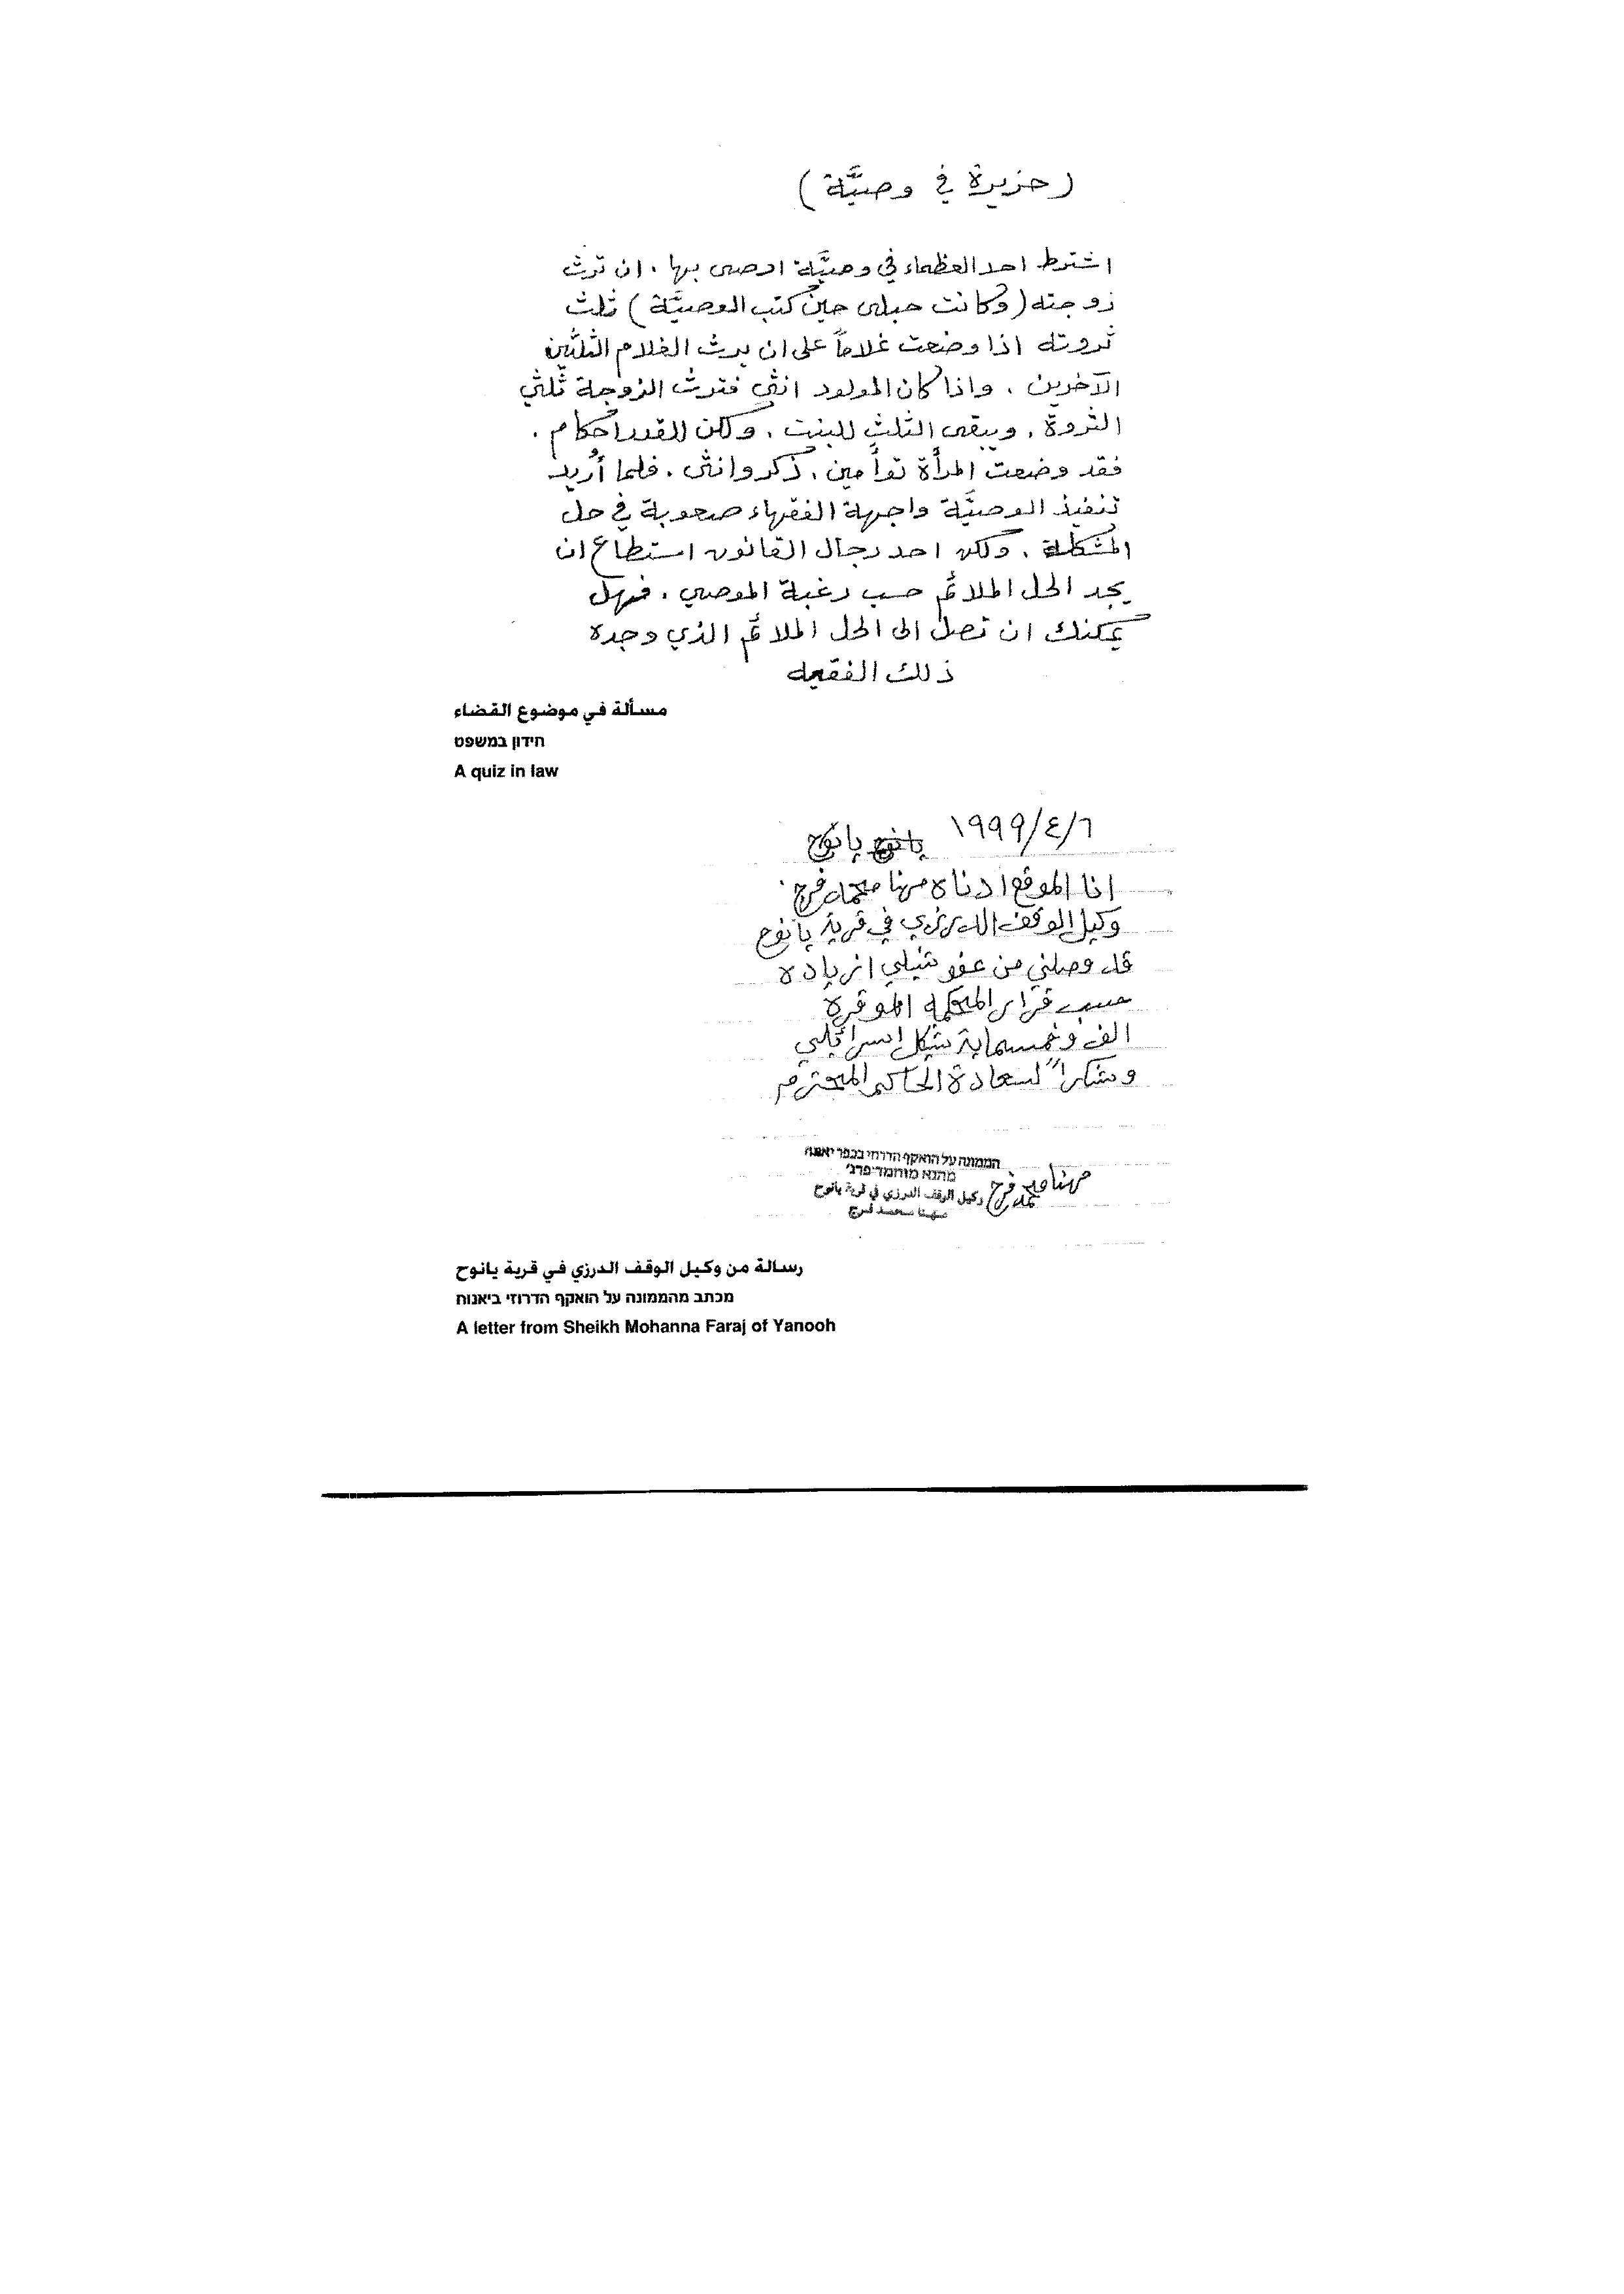 (حزيرة في وصيَّة)
اشترط احد العظماء في وصيَّة اوصى بها، ان ترث
زوجته (وكانت حبلى حين كتب الوصيَّة) ثلث
ثروته اذا وضعت غلاماً على ان يرث الغلام الثلثين
الآخرين، واذا كان المولود انثى فترث الزوجة ثُلثي
الثروة، ويبقى الثلث للبنت، ولكن للقدر احكام.
فقد وضعت المرأة توأمين، ذكر وانثى. فلما أُريد
تنفيذ الوصيَّة واجهة الفقهاء صعوبة في حل
المشكلة، ولكن احد رجال القانون استطاع ان
يجد الحل الملائم حسب رغبة الموصي. فهل
يمكنك ان تصل الى الحل الملائم الذي وجده
ذلك الفقيه
مسألة في موضوع القضاء
חידון במשפט
A quiz in law
١٩٩٩/٤/٦ يانوح يانوح
انا الموقع ادناه مهنا محمد فرج
وكيل الوقف الدرزي في قرية يانوح
قد وصلني من عفو
حسب قرار المحكمه الموقره
الف وخمسماية شيكل اسرائيلي
وشكراً لسعادة الحاكم المحترم
הממונה על הואקף הדרוזי בכפר יאנוח
מהנא מוחמד פרג'
مهنا محمد فرج
وكيل الوقف الدرزي في قرية يانوح
مهنا محمد فرج
رسالة من وكيل الوقف الدرزي في قرية يانوح
מכתב מהממונה על הואקף הדרוזי ביאנוח
A letter from Sheikh Mohanna Faraj of Yanooh